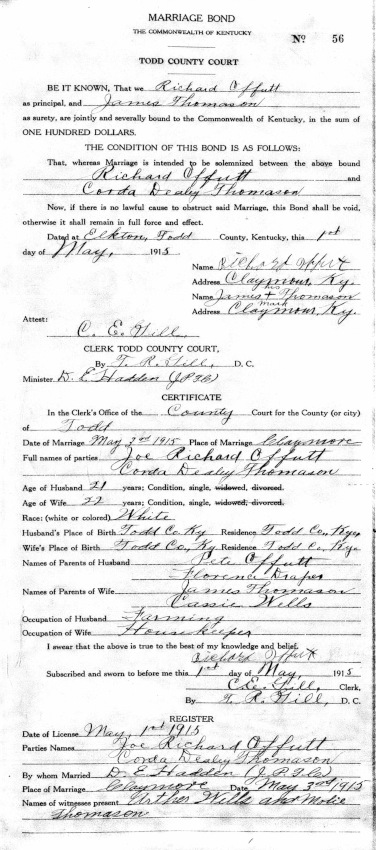 MARRIAGE BOND
THE COMMONWEALTH OF KENTUCKY
No. 56
TODD COUNTY COURT
BE IT KNOWN, That we Richard Offutt
as principal, and James Thomason
as surety, are jointly and severally bound to the Commonwealth of Kentucky, in the sum of
ONE HUNDRED DOLLARS.
THE CONDITION OF THIS BOND IS AS FOLLOWS:
That, whereas Marriage is intended to be solemnized between the above bound
Richard Offutt and
Corda Dealy Thomason
Now, if there is no lawful cause to obstruct said Marriage, this Bond shall be void,
otherwise it shall remain in full force and effect.
Dated at Elkton, Todd County, Kentucky, this 1st
day of May, 1915
Name Richard Offutt
Address Claymour, Ky.
his
Name James + Thomason
mark
Address Claymour, Ky.
Attest:
C. E. Gill,
CLERK TODD COUNTY COURT,
By T. R. Gill, D. C.
Minister D. E. Hadden
CERTIFICATE
In the Clerk's Office of the County Court for the County (or city)
of Todd
Date of Marriage May 3rd 1915 Place of Marriage Claymore
Full names of parties Joe Richard Offutt
Corda Dealy Thomason
Age of Husband 21 years; Condition, single, widowed, divorced.
Age of Wife 22 years; Condition, single, widowed, divorced.
Race: (white or colored) White
Husband's Place of Birth Todd Co, Ky Residence Todd Co, Ky,
Wife's Place of Birth Todd Co, Ky Residence Todd Co, Ky,
Names of Parents of Husband Pete Offutt
Florence Draper
Names of Parents of Wife James Thomason
Cassie Wells
Occupation of Husband Farming
Occupation of Wife Housekeeper
I swear that the above is true to the best of my knowledge and belief.
Richard Offutt
Subscribed and sworn to before me this 1st day of May, 1915
C. E. Gill, Clerk,
By T. R. Gill, D. C.
REGISTER
Date of License May, 1st 1915
Parties Names Joe Richard Offutt
Corda Dealy Thomason
By whom Married D. E. Hadden
Place of Marriage Claymore Date May 3rd 1915
Names of witnesses present Arther Wells and Molie
Thomason